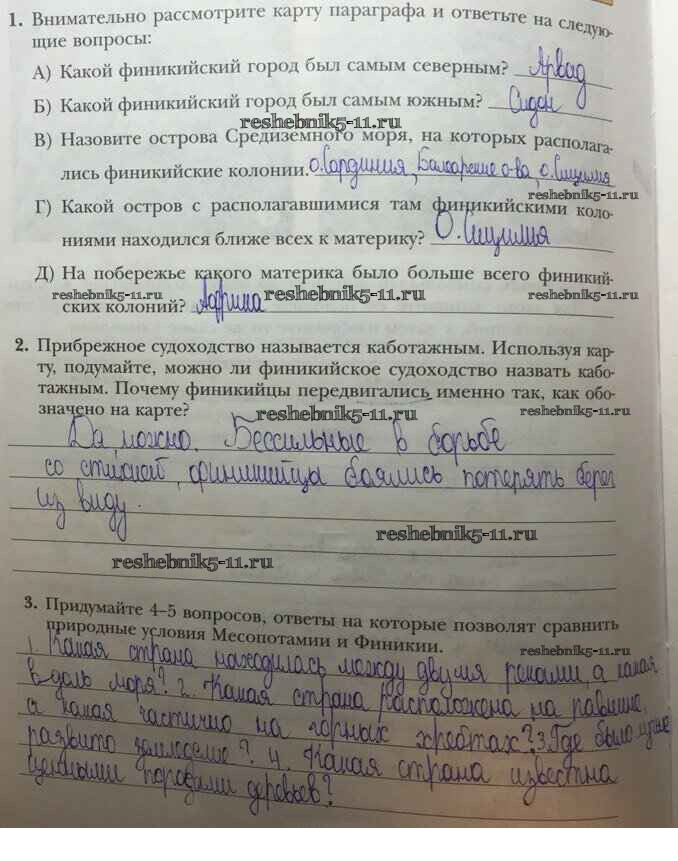 1. Внимательно рассмотрите карту параграфа и ответьте на следую-
щие вопросы:
А) Какой финикийский город был самым северным? Арвад
Б) Какой финикийский город был самым южным? Сидон
reshebnik5-11.ru
В) Назовите острова Средиземного моря, на которых распола-
лись финикийские колонии. о. Сардиния, Балеарские о-ва, о. Сицилия
reshebnik5-11.ru
Г) Какой остров с располагавшимися там финикийскими коло-
ниями находился ближе всех к материку? О. Сицилия
Д) На побережье какого материка было больше всего финикий-
reshebnik5-11.ru reshebnik5-11.ru reshebnik5-11.ru
ских колоний? Африка
2. Прибрежное судоходство называется каботажным. Используя кар-
ту, подумайте, можно ли финикийское судоходство назвать кабо-
тажным. Почему финикийцы передвигались именно так, как обо-
значено на карте?
reshebnik5-11.ru reshebnik5-11.ru
Да, можно. Бессильные в борьбе
со стихией, финикийцы боялись потерять берег
из виду.
reshebnik5-11.ru
reshebnik5-11.ru
3. Придумайте 4–5 вопросов, ответы на которые позволят сравнить
природные условия Месопотамии и Финикии.
reshebnik5-11.ru
1. Какая страна находилась между двумя реками, а какая
вдоль моря? 2. Какая страна расположена на равнине,
а какая частично на горных хребтах? 3. Где было лучше
развито земледелие? 4. Какая страна известна
ценными породами деревьев?